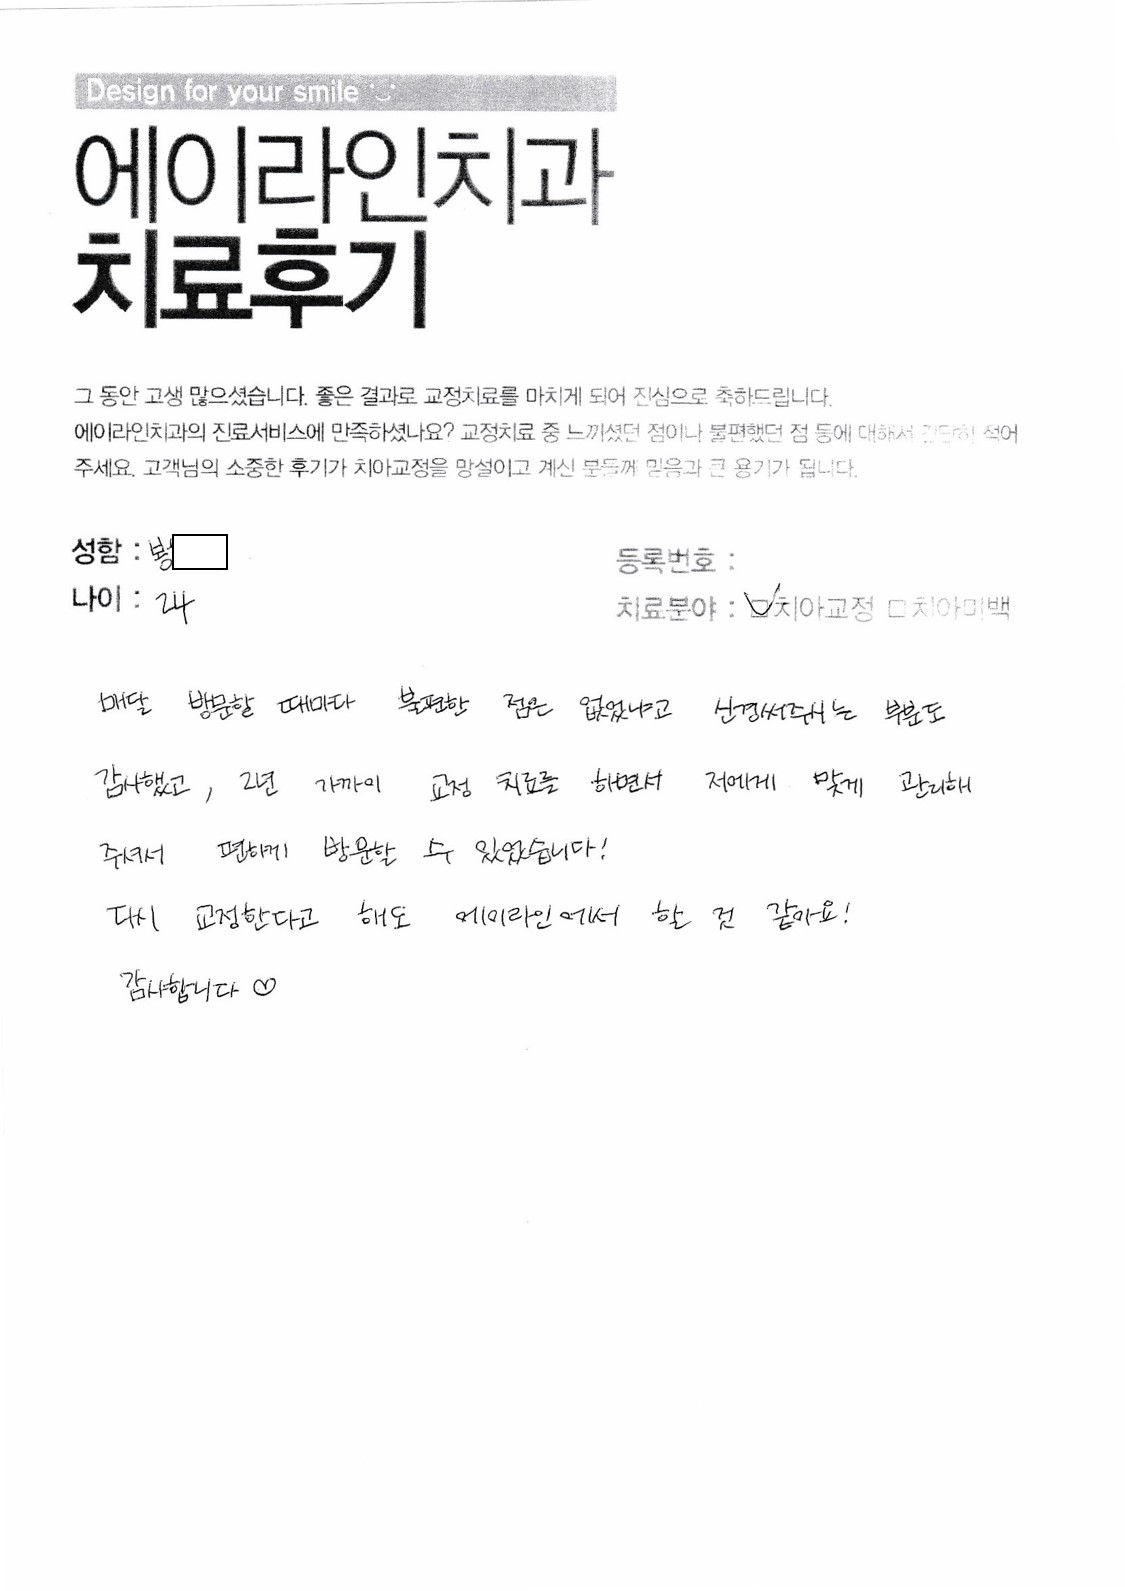 Design for your smile
에이라인치과
치료후기
그 동안 고생 많으셨습니다. 좋은 결과로 교정치료를 마치게 되어 진심으로 축하드립니다.
에이라인치과의 진료서비스에 만족하셨나요? 교정치료 중 느끼셨던 점이나 불편했던 점 등에 대해서 간단히 적어
주세요. 고객님의 소중한 후기가 치아교정을 망설이고 계신 분들께 믿음과 큰 용기가 됩니다.
성함 :
등록번호 :
나이 : 24
치료분야 : ☑치아교정 □치아미백
매달 방문할 때마다 불편한 점은 없었냐고 신경써주시는 부분도
감사했고, 2년 가까이 교정 치료를 하면서 저에게 맞게 관리해
주셔서 편하게 방문할 수 있었습니다!
다시 교정한다고 해도 에이라인에서 할 것 같아요!
감사합니다 ♡